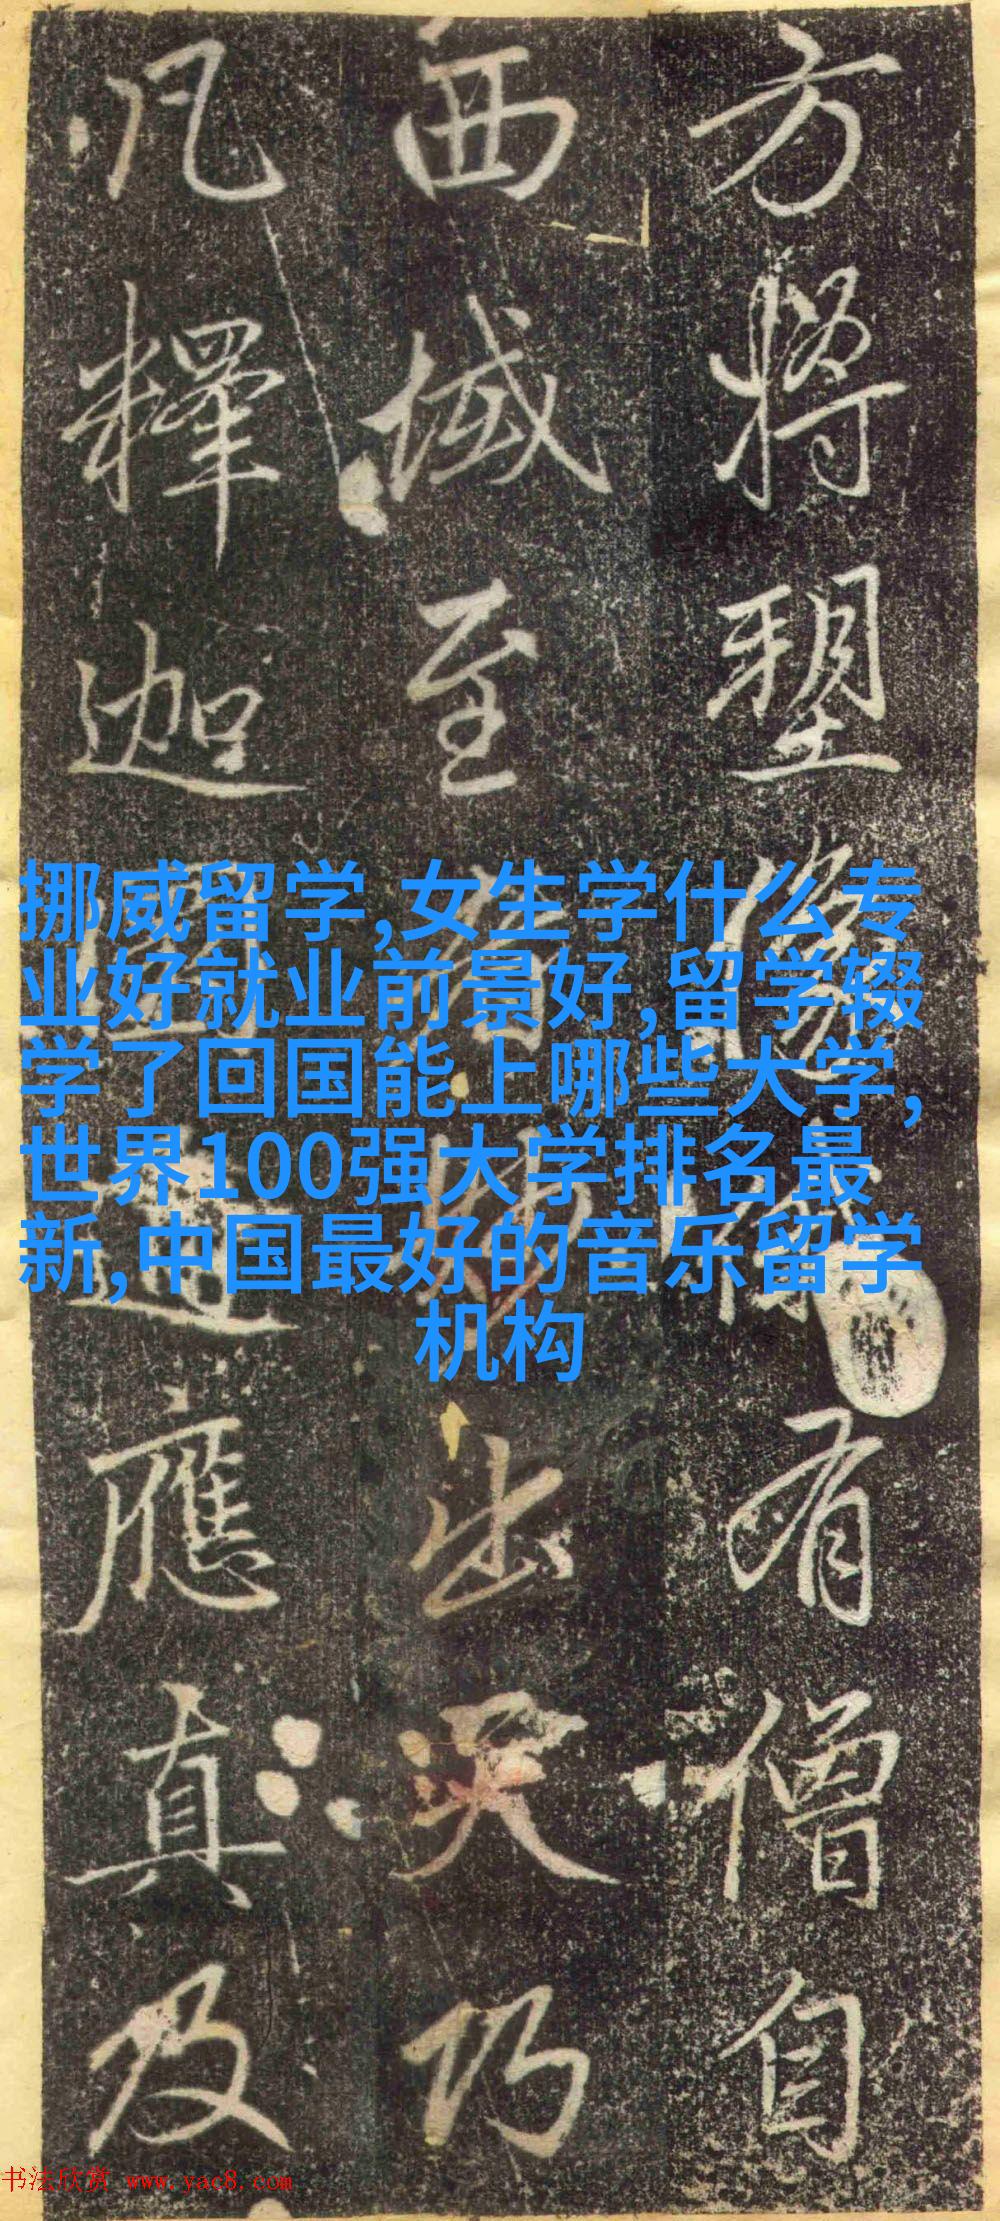 方將塑像有僧自
西域至出天巧
凡釋迦應真及
挪威留学,女生学什么专
业好就业前景好,留学辍
学了回国能上哪些大学,
世界100强大学排名最
新,中国最好的音乐留学
机构
书法欣赏 www.yac8.com